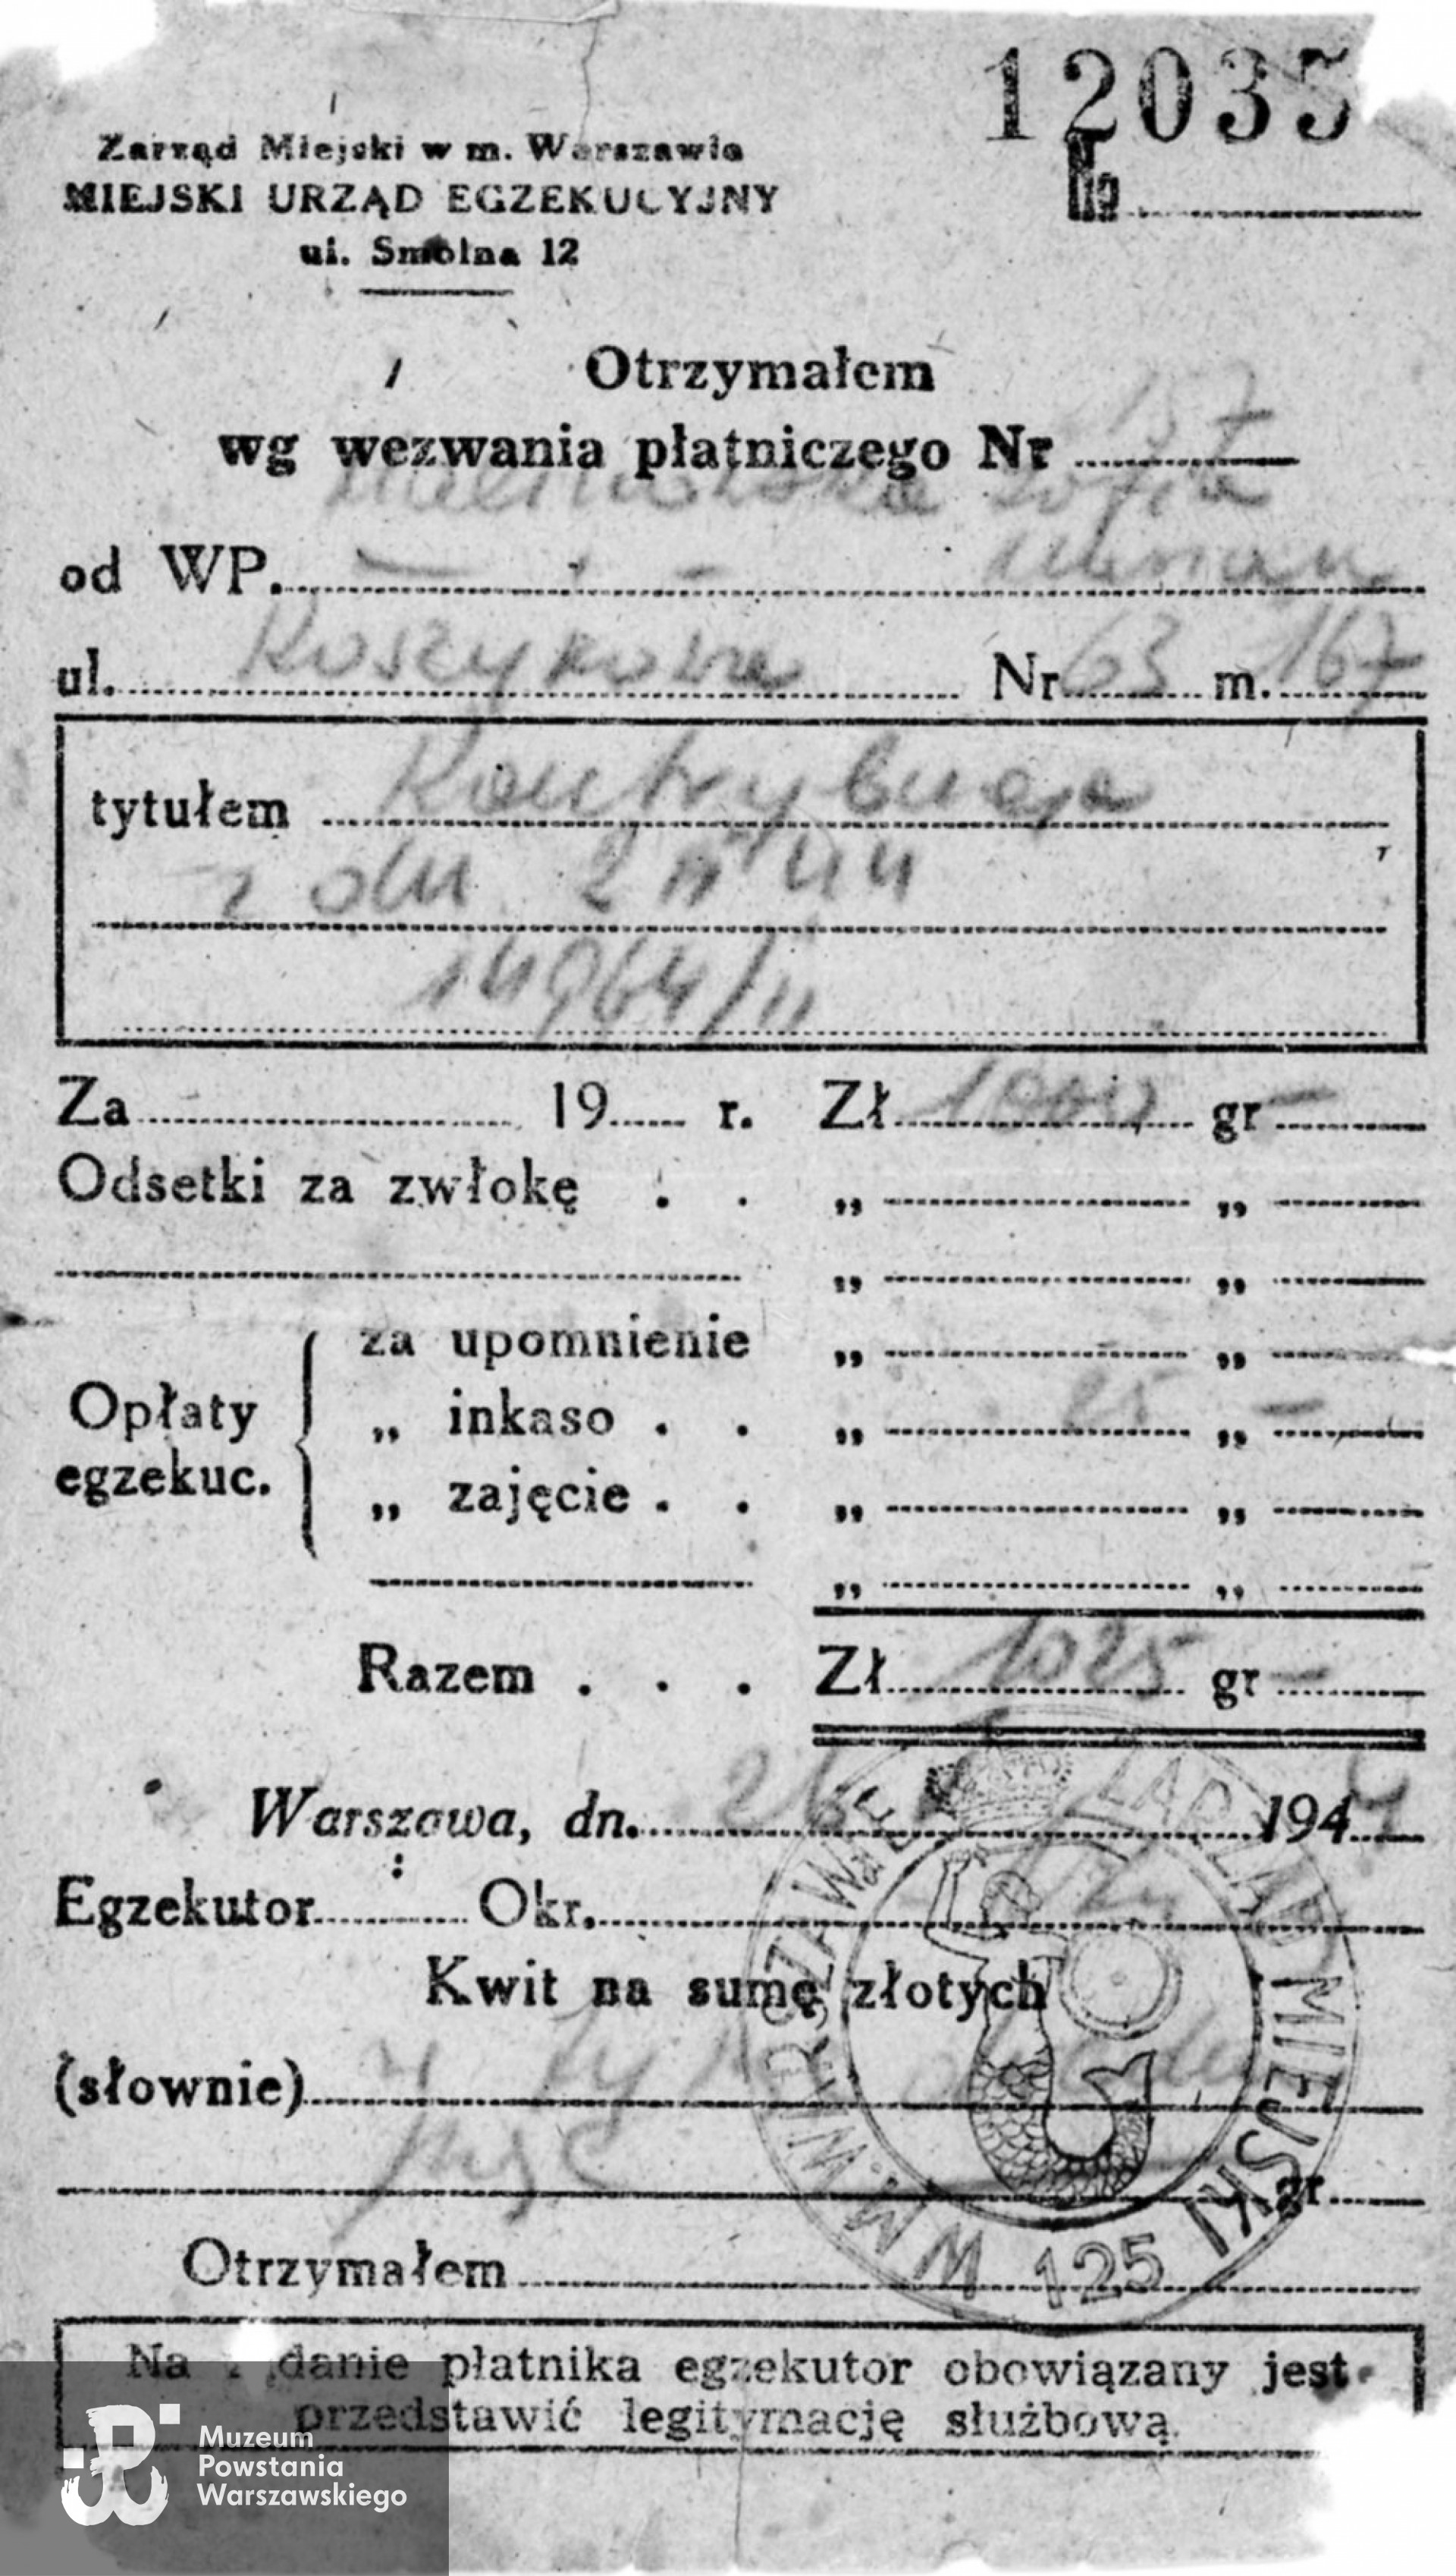 12035
Zarząd Miejski w m. Warszawie
MIEJSKI URZĄD EGZEKUCYJNY
№
ul. Smolna 12
Otrzymałem
wg wezwania płatniczego Nr 137
Zofia
od WP.
ul. Koszykowa Nr 63 m. 167
tytułem Kontrybucja
z dn. 2 II 44
14964/II
Za 19 r. Zł 1000 gr —
Odsetki za zwłokę . . „ „
„ „
za upomnienie „ „
Opłaty egzekuc. „ inkaso . . „ 25 „ —
„ zajęcie . . „ „
„ „
Razem . . . Zł 1025 gr —
Warszawa, dn. 1944
Egzekutor Okr.
Kwit na sumę złotych
(słownie)
gr
Otrzymałem
ZARZĄD MIEJSKI W M. WARSZAWIE
125
Na żądanie płatnika egzekutor obowiązany jest
przedstawić legitymację służbową.
Muzeum
Powstania
Warszawskiego